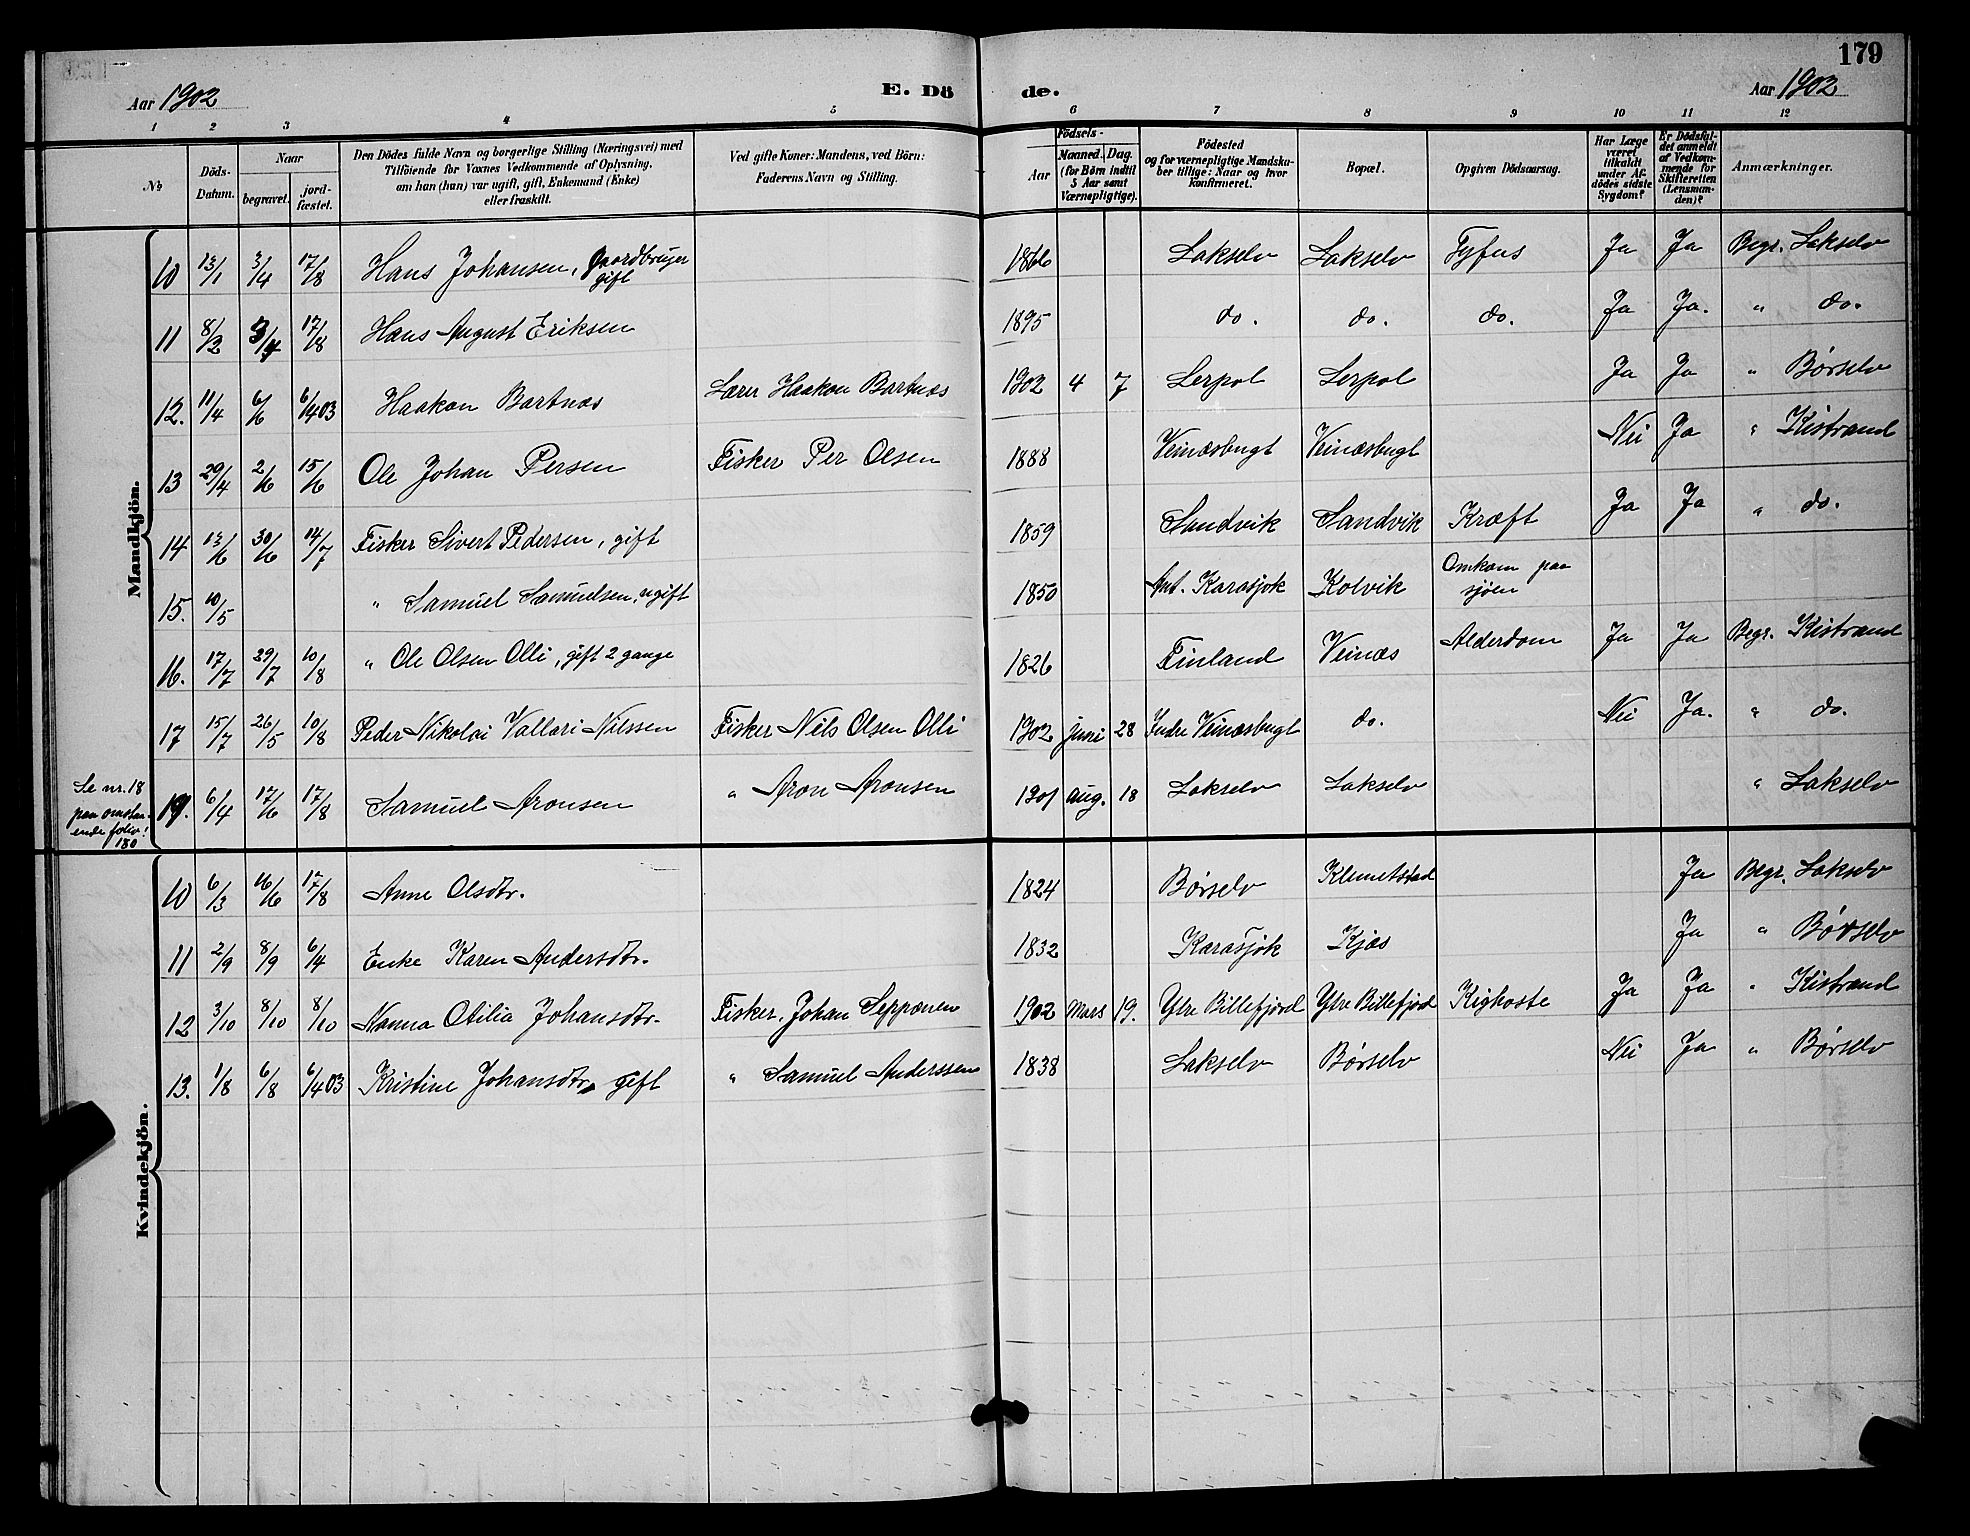 179
Aar 1902
E. Dö de.
Aar 1902
1 2 3 4 5 6 7 8 9 10 11 12
No
Döds-Datum.
Naar
begravet.
jord-fæstet.
Den Dödes fulde Navn og borgerlige Stilling (Næringsvei) med
Tilföiende for Voxnes Vedkommende af Oplysning,
om han (hun) var ugift, gift, Enkemand (Enke)
eller fraskilt.
Ved gifte Koner: Mandens, ved Börn:
Faderens Navn og Stilling.
Födsels-
Aar
Maaned. Dag.
(for Börn indtil
5 Aar samt
Værnepligtige).
Födested
og for værnepligtige Mandska-
ber tillige: Naar og hvor
konfirmeret.
Bopæl.
Opgiven Dödsaarsag.
Har Læge
været
tilkaldt
under Af-
dödes sidste
Sygdom?
Er Dödsfal-
det anmeldt
af Vedkom-
mende for
Skifteretten
(Lensman-
den)?
Anmærkninger.
Mandkjön.
10 13/1 3/4 17/8 Hans Johansen, Gaardbruger gift 1866 Lakselv Lakselv Tyfus Ja Ja Begr. Lakselv
11 8/2 3/4 17/8 Hans August Eriksen 1895 do. do. do. Ja Ja. " do.
12. 11/4 6/6 6/4 03 Haakon Bartnæs Lærer Haakon Bartnæs 1902 4 7 Lerpol Lerpol Ja Ja " Børselv
13 29/4 2/6 15/6 Ole Johan Persen Fisker Per Olsen 1888 Veinæsbugt Veinæsbugt Nei Ja " Kistrand
14 13/6 30/6 14/7 Fisker Sivert Pedersen, gift 1859 Sandvik Sandvik Kræft Ja Ja " do.
15. 10/5 " Samuel Samuelsen, ugift 1850 Karasjok Kolvik Omkom paa sjøen
16. 17/7 29/7 10/8 " Ole Olsen Olli, gift 2 gange 1826 Finland Veinæs Alderdom Ja Ja Begr. Kistrand
17 15/7 26/5 10/8 Peder Nikolai Vallari Nilssen Fisker Nils Olsen Olli 1902 juni 28 Indre Veinæsbugt do. Nei Ja. " do.
Se nr. 18
paa omstaa-
ende folio!
180
19. 6/4 17/6 17/8 Samuel Aronsen " Aron Aronsen 1901 aug. 18 Lakselv Lakselv " Lakselv
Kvindekjön.
10 6/3 16/6 17/8 Anne Olsdtr. 1824 Børselv Klemetstad Ja Begr. Lakselv
11 2/9 8/9 6/4 Enke Karen Andersdtr. 1832 Karasjok Kjæs Ja " Børselv
12 3/10 8/10 8/10 Nanna Otilia Johansdtr. Fisker, Johan Seppænen 1902 Mars 19. Ytre Billefjord Ytre Billefjod Kighoste Ja Ja " Kistrand
13. 1/8 6/8 6/4 03 Kristine Johansdtr. gift " Samuel Anderssen 1838 Lakselv Børselv Nei Ja " Børselv